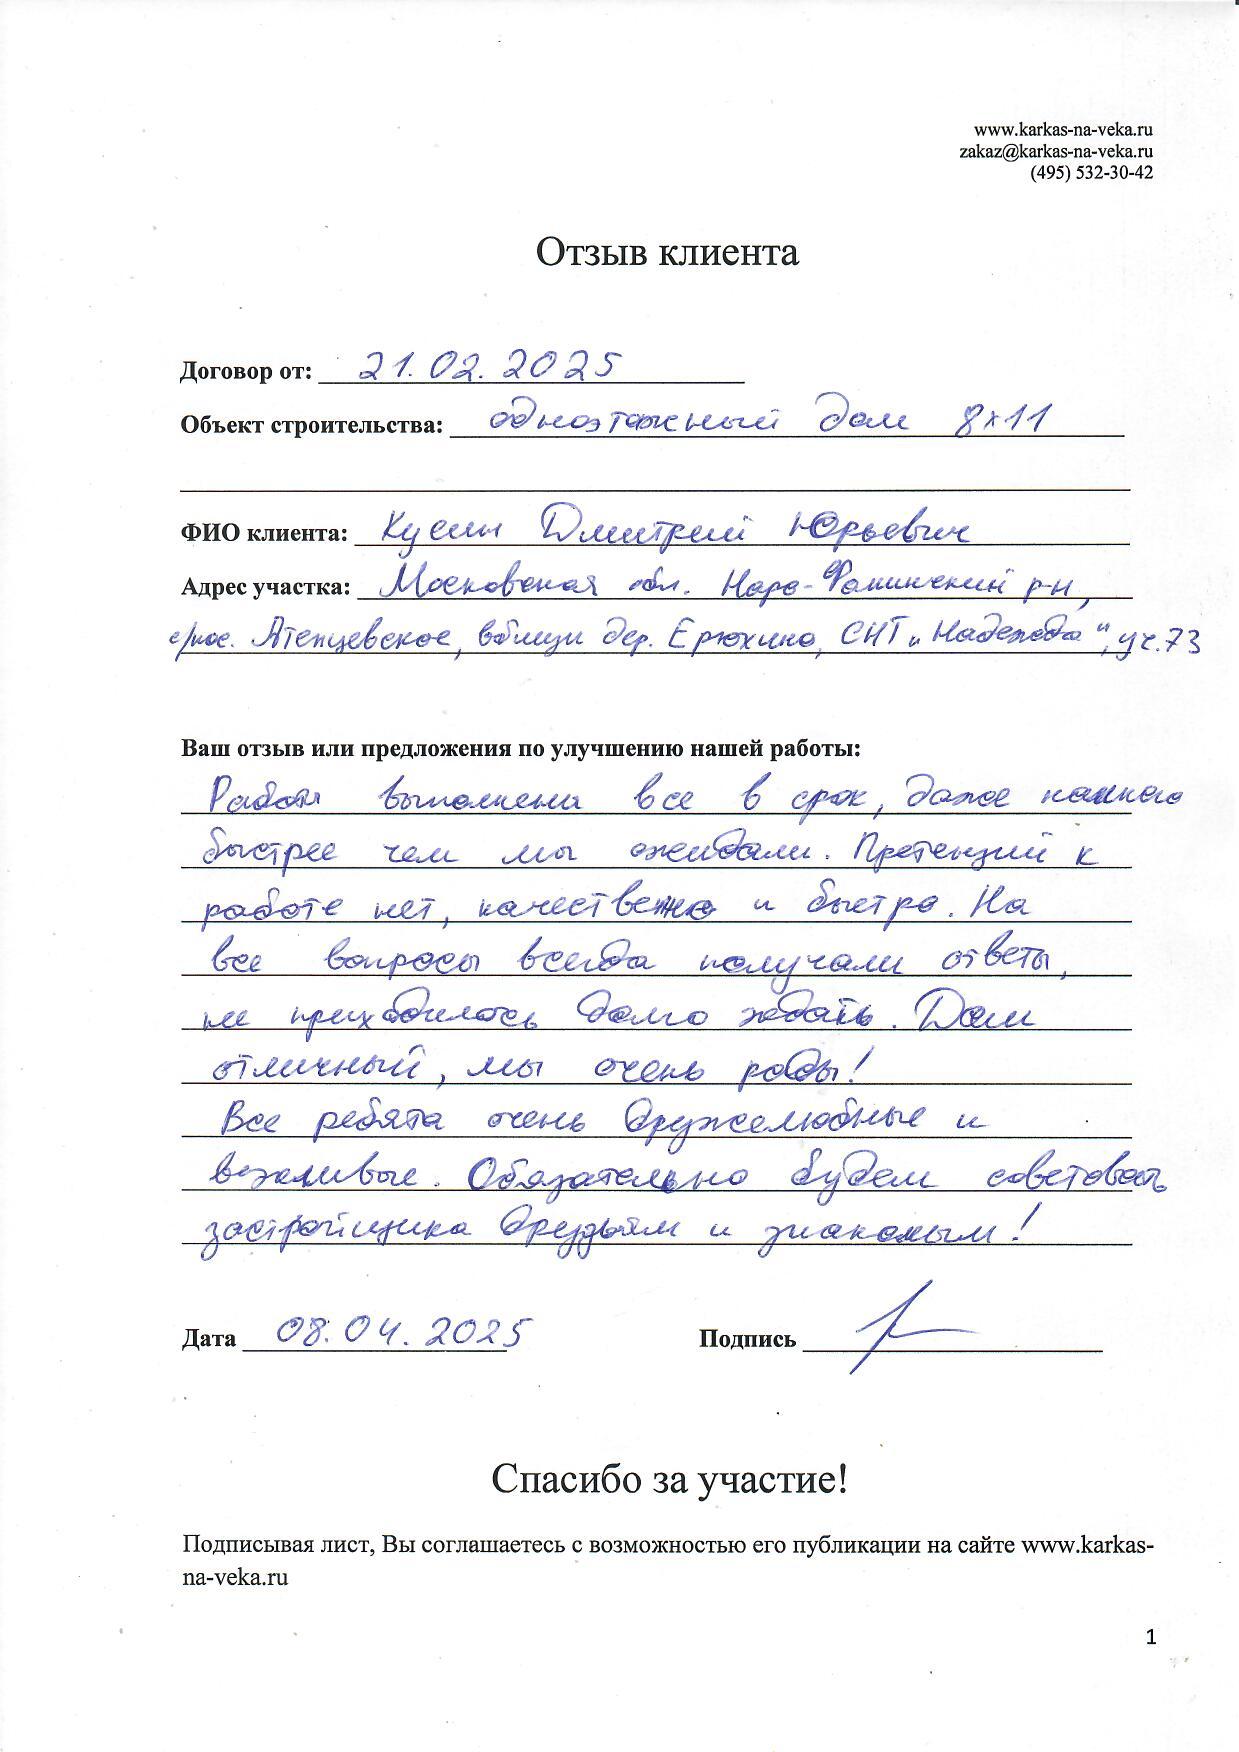 www.karkas-na-veka.ru
zakaz@karkas-na-veka.ru
(495) 532-30-42
Отзыв клиента
Договор от: 21.02.2025
Объект строительства: одноэтажный дом 8х11
ФИО клиента: Дмитрий Юрьевич
Адрес участка: Московская обл. Наро-Фоминский р-н,
с/пос. Атепцевское, вблизи дер. Ерюхино, СНТ „Надежда", уч.73
Ваш отзыв или предложения по улучшению нашей работы:
Работы выполнены все в срок, даже намного
быстрее чем мы ожидали. Претензий к
работе нет, качественно и быстро. На
все вопросы всегда получали ответы,
не приходилось долго ждать. Дом
отличный, мы очень рады!
Все ребята очень дружелюбные и
вежливые. Обязательно будем советовать
застройщика друзьям и знакомым!
Дата 08.04.2025 Подпись
Спасибо за участие!
Подписывая лист, Вы соглашаетесь с возможностью его публикации на сайте www.karkas-
na-veka.ru
1